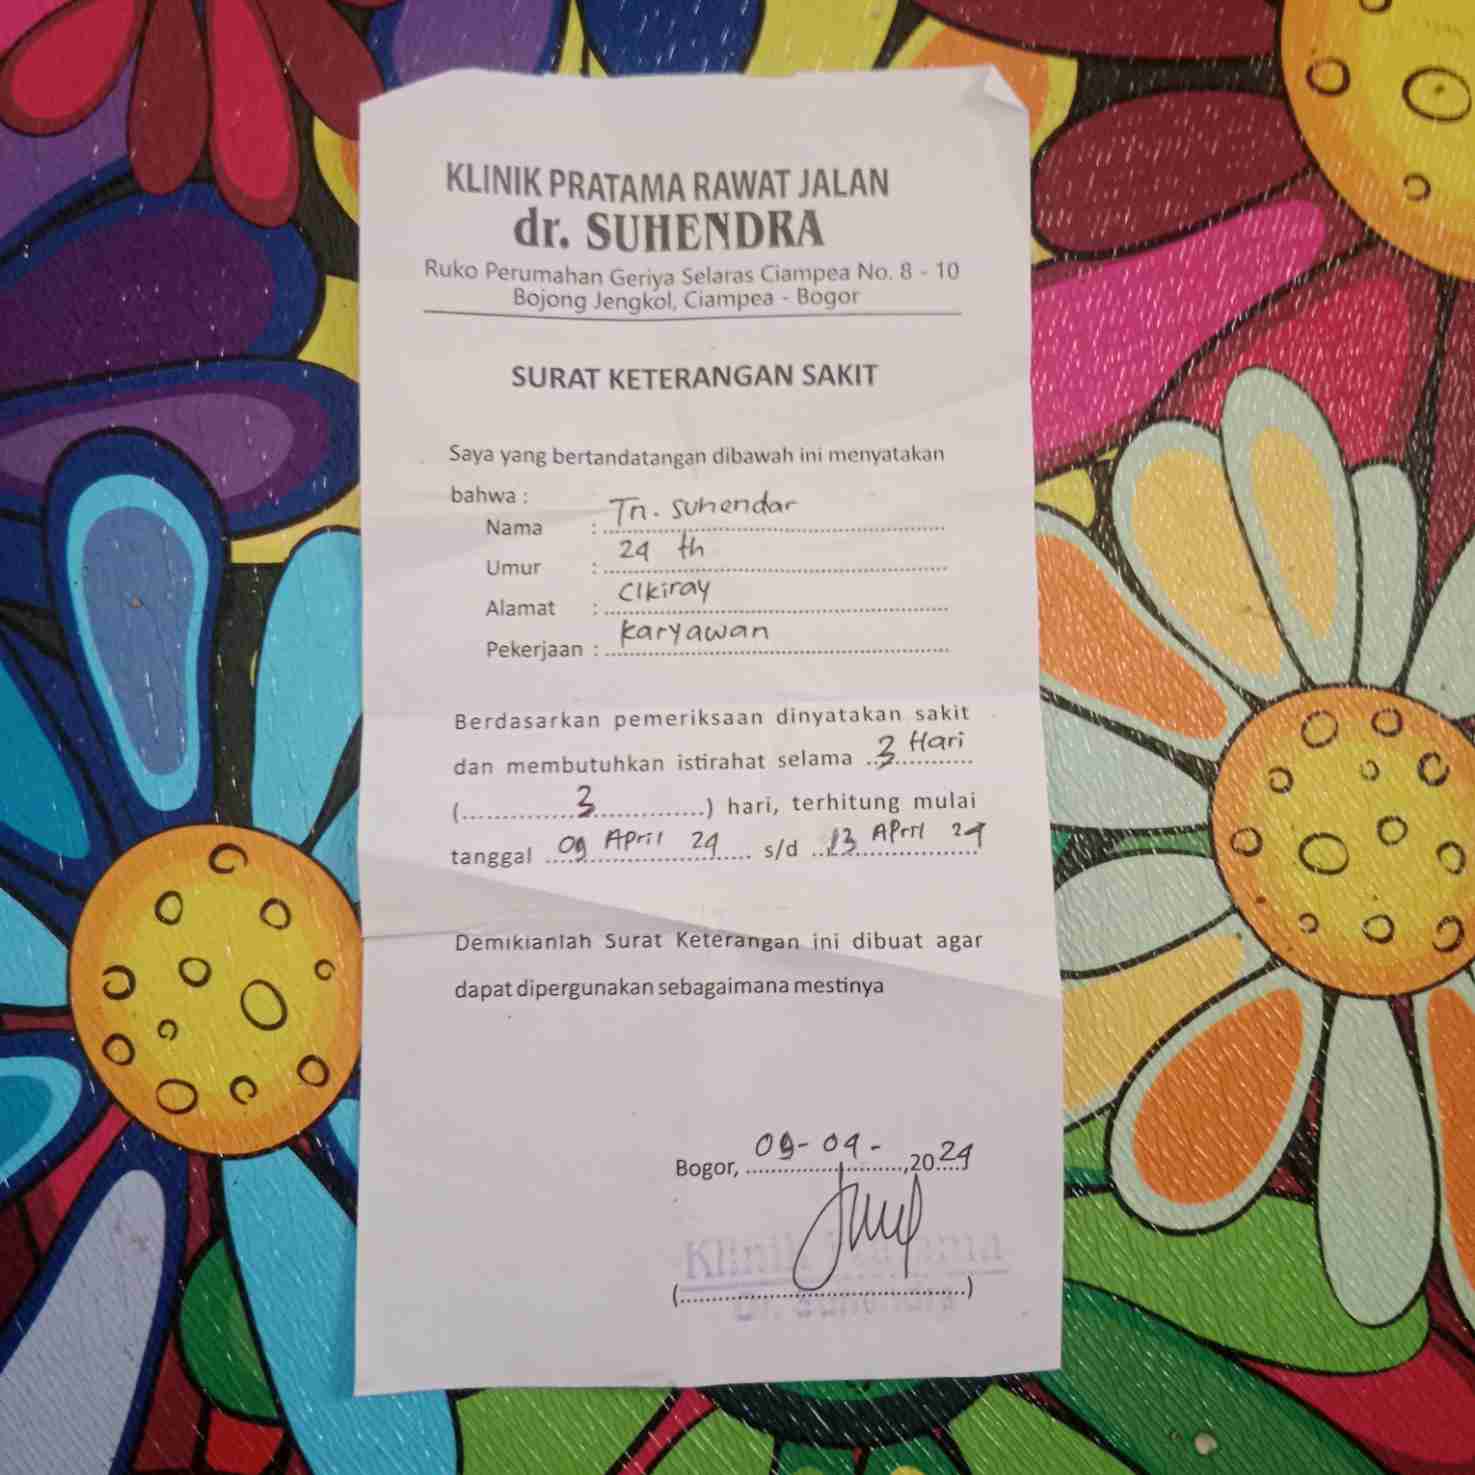 KLINIK PRATAMA RAWAT JALAN
dr. SUHENDRA
Ruko Perumahan Geriya Selaras Ciampea No. 8 - 10
Bojong Jengkol, Ciampea - Bogor
SURAT KETERANGAN SAKIT
Saya yang bertandatangan dibawah ini menyatakan
bahwa :
Nama : Tn. Suhendar
Umur : 24 th
Alamat : Cikiray
Pekerjaan : Karyawan
Berdasarkan pemeriksaan dinyatakan sakit
dan membutuhkan istirahat selama 3 Hari
(3) hari, terhitung mulai
tanggal 09 April 24 s/d 13 April 24
Demikianlah Surat Keterangan ini dibuat agar
dapat dipergunakan sebagaimana mestinya
Bogor, 09-04-, 2024
Klinik Pratama
Dr. Suhendra